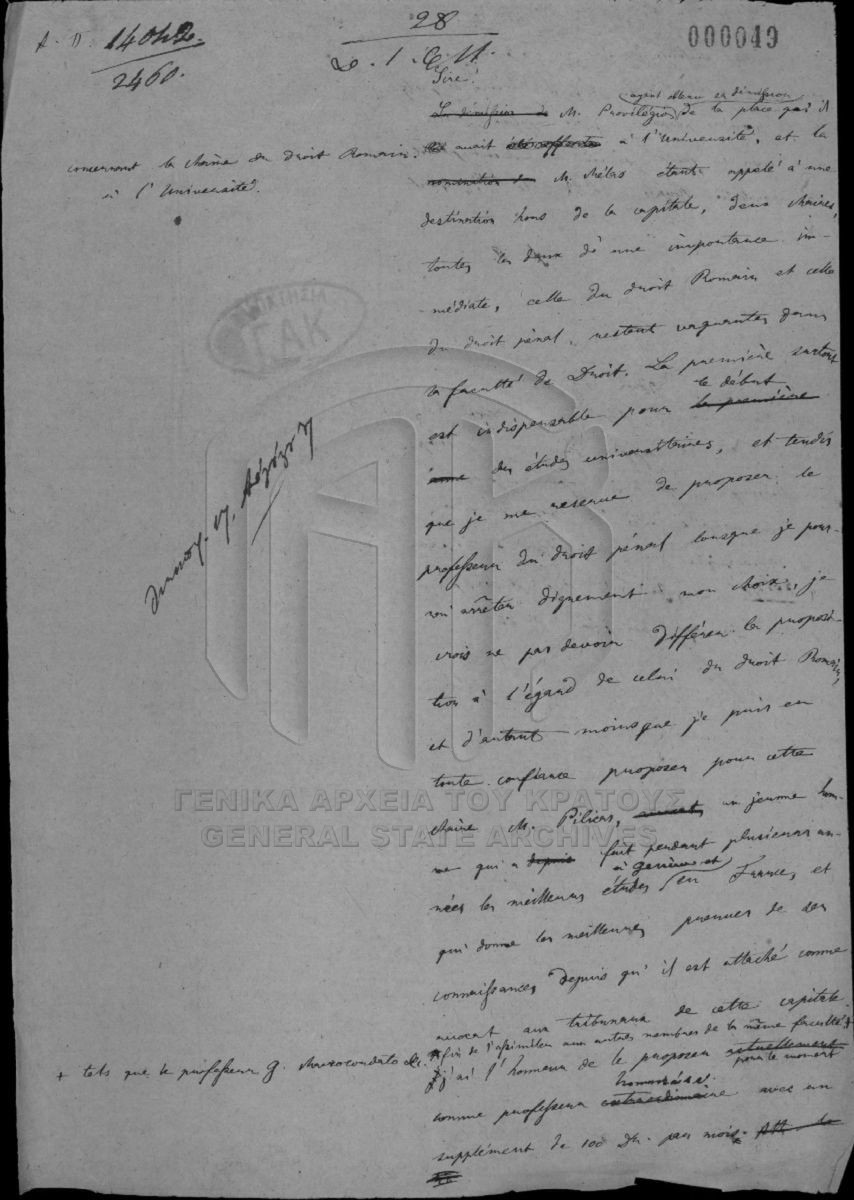 28
000049
A. D. 14042.
2460.
Sire!
concernant la chaire du Droit Romain
à l'Université.
ayant obtenu sa démission
La démission de M. Provilégios de la place qu'il
avait à l'Université, et la
nomination de M. Mélas étant appelé à une
destination hors de la capitale, deux chaires,
toutes les deux d'une importance im-
médiate, celle du droit Romain et celle
du droit pénal, restent vaquantes dans
la faculté de Droit. La première surtout
le début
est indispensable pour la première
des études universitaires, et tandis
que je me reserve de proposer le
professeur du droit pénal lorsque je pour-
rai arrêter dignement mon choix, je
crois ne pas devoir différer la proposi-
tion à l'égard de celui du droit Romain,
et d'autant moins que je puis en
toute confiance proposer pour cette
chaire M. Pilicas, un jeune hom-
me qui a depuis fait pendant plusieurs an-
à Genève et
nées les meilleures études en France, et
qui donne les meilleures preuves de ses
connaissances, depuis qu'il est attaché comme
avocat aux tribunaux de cette capitale.
afin de l'assimiler aux autres membres de la même faculté +
+ tels que le professeur G. Mavrocordato &c.
j'ai l'honneur de le proposer actuellement
pour le moment
honoraire
comme professeur extraordinaire avec un
supplément de 100 Dr. par mois.
ΓΑΚ
ΓΕΝΙΚΑ ΑΡΧΕΙΑ ΤΟΥ ΚΡΑΤΟΥΣ
GENERAL STATE ARCHIVES